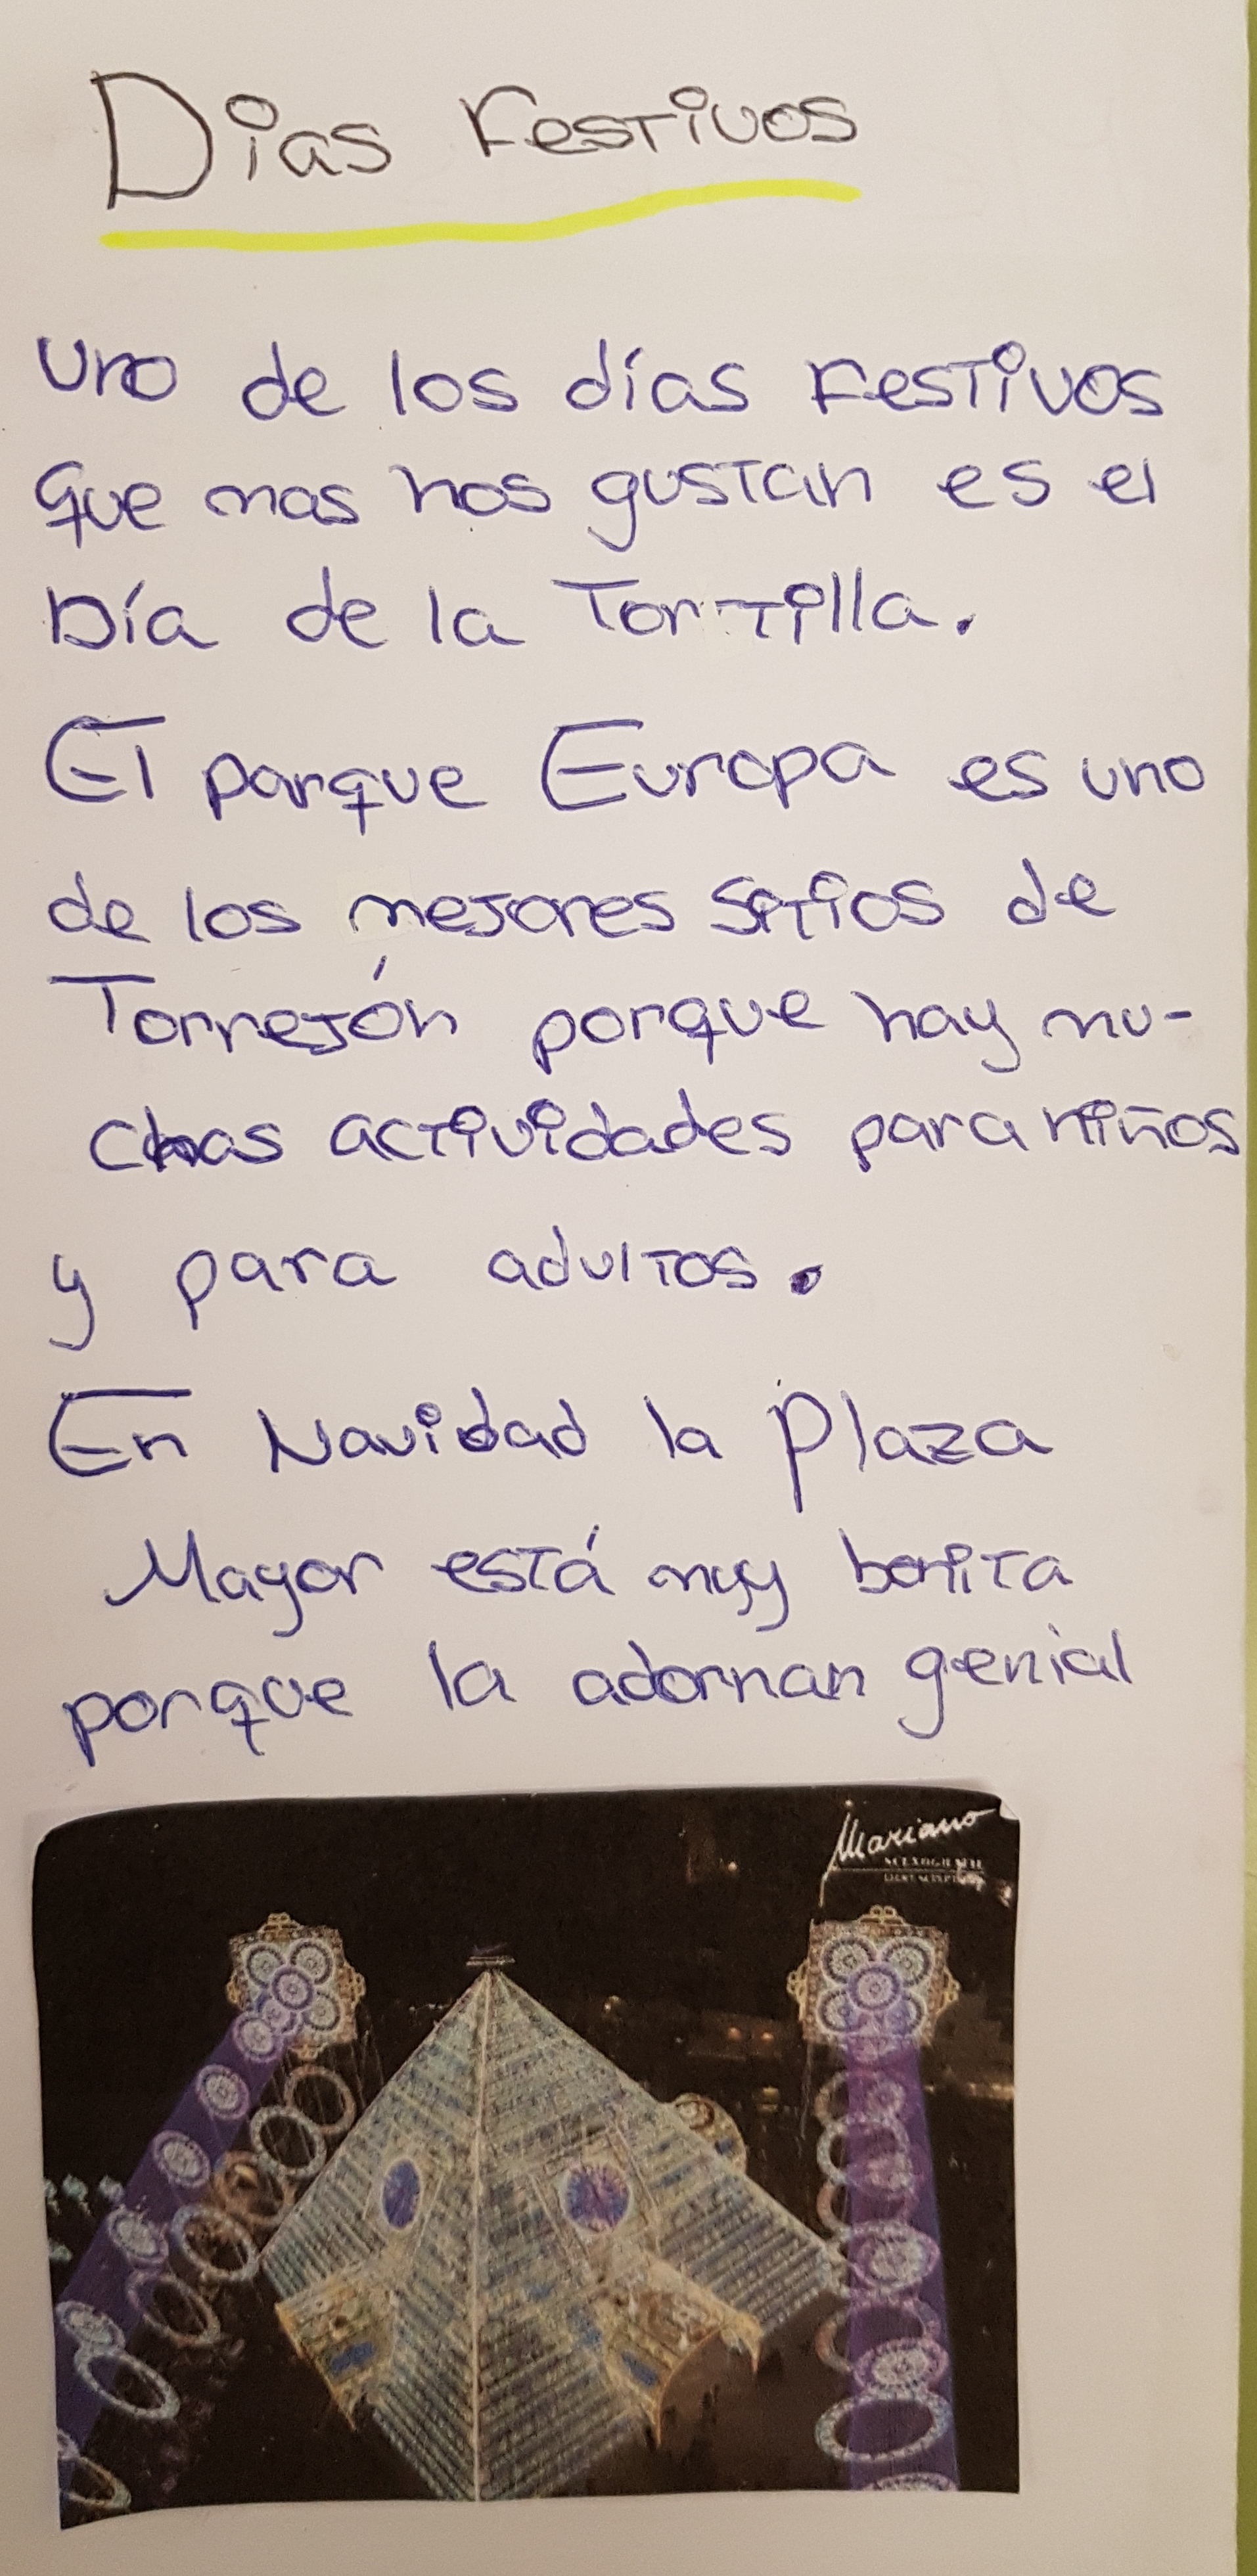 Dias Festivos
Uno de los días festivos
que mas nos gustan es el
Día de la Tortilla.
El parque Europa es uno
de los mejores sitios de
Torrejón porque hay mu-
chas actividades para niños
y para adultos.
En Navidad la Plaza
Mayor está muy bonita
porque la adornan genial
Mariano